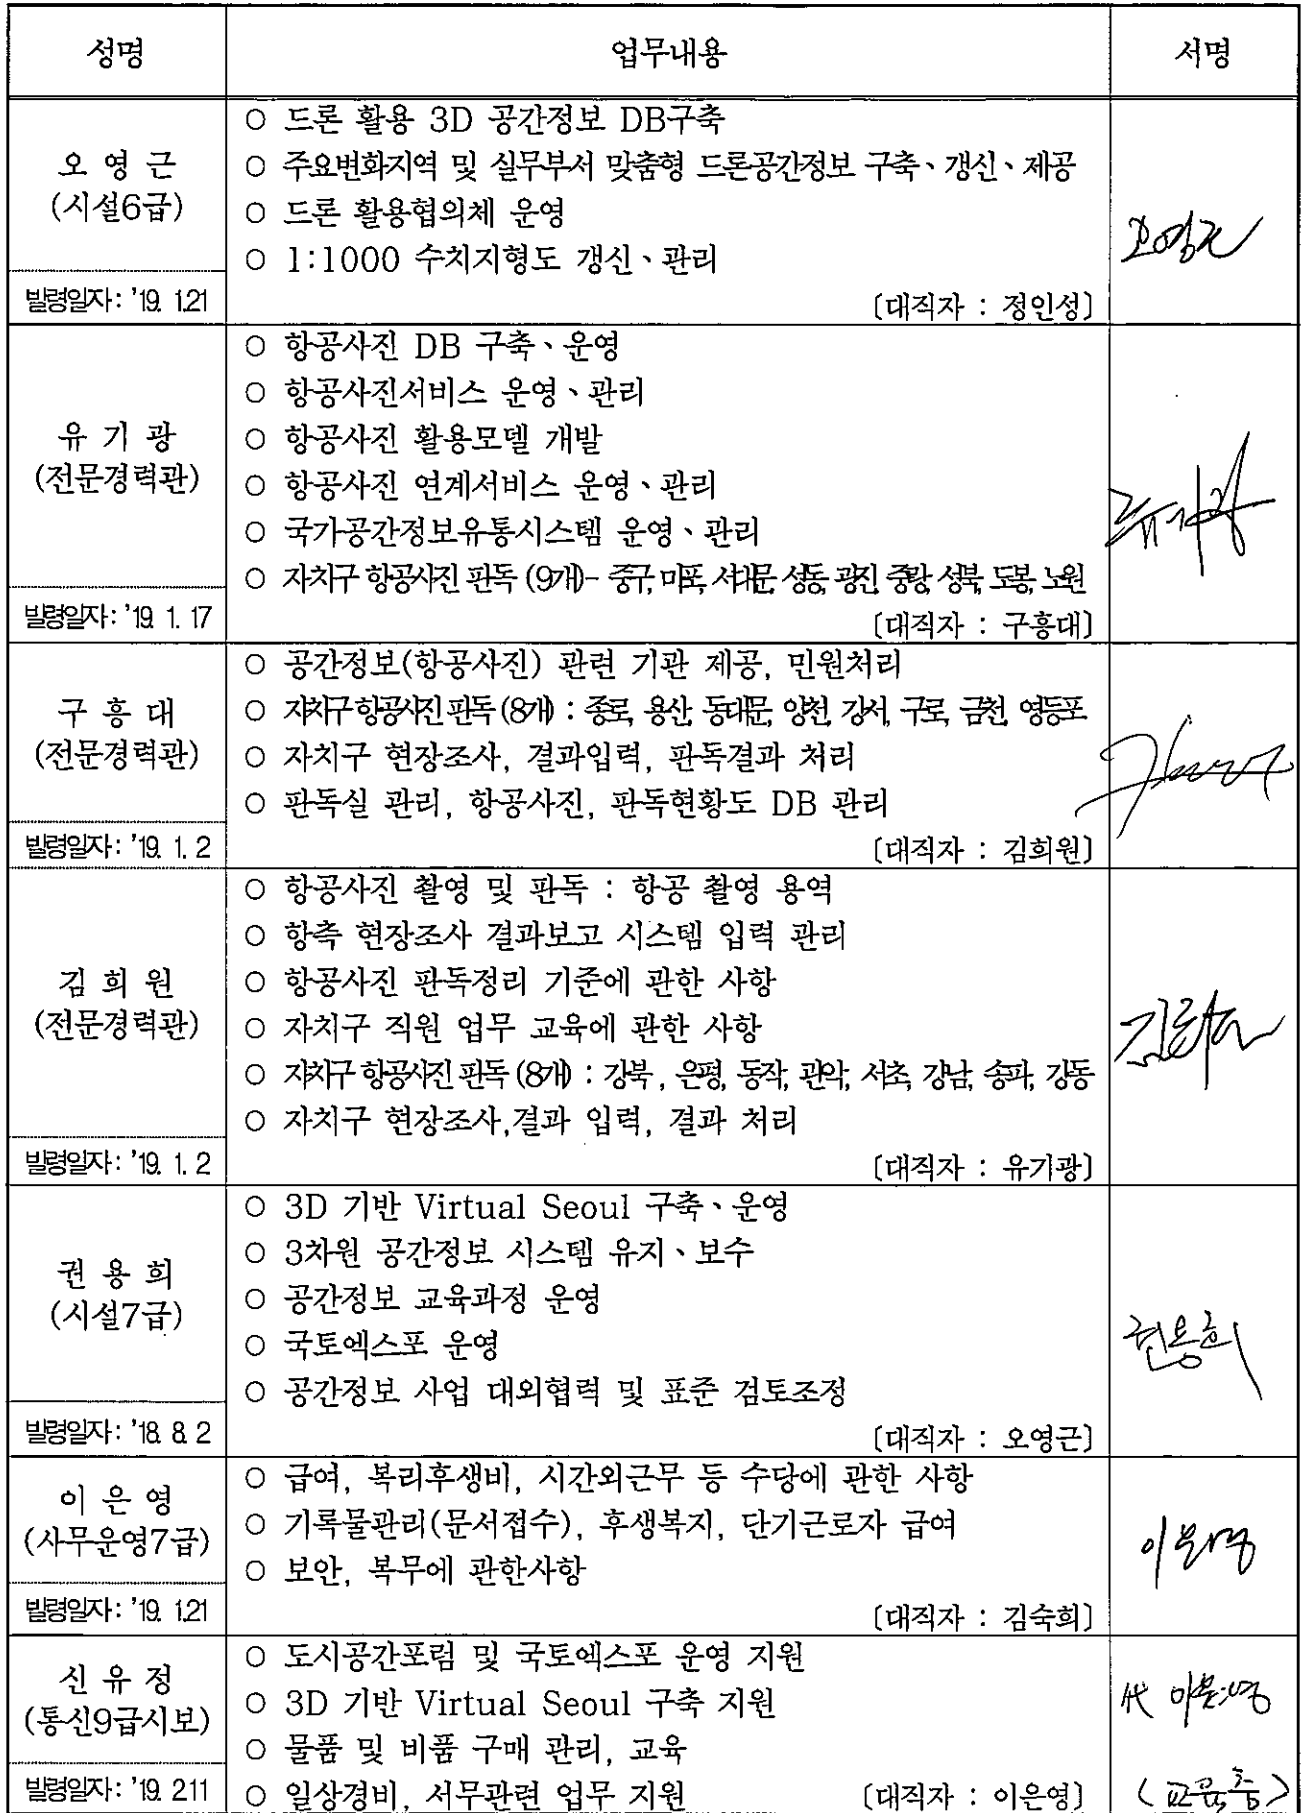 성명 업무내용 서명
오 영 근
(시설6급)
발령일자 : '19. 1.21
○ 드론 활용 3D 공간정보 DB구축
○ 주요변화지역 및 실무부서 맞춤형 드론공간정보 구축、갱신、제공
○ 드론 활용협의체 운영
○ 1:1000 수치지형도 갱신、관리
〔대직자 : 정인성〕
오영근
유 기 광
(전문경력관)
발령일자 : '19. 1. 17
○ 항공사진 DB 구축、운영
○ 항공사진서비스 운영、관리
○ 항공사진 활용모델 개발
○ 항공사진 연계서비스 운영、관리
○ 국가공간정보유통시스템 운영、관리
○ 자치구 항공사진 판독 (9개)- 중구, 마포, 서대문, 성동, 광진, 중랑, 성북, 도봉, 노원
〔대직자 : 구흥대〕
유기광
구 흥 대
(전문경력관)
발령일자 : '19. 1. 2
○ 공간정보(항공사진) 관련 기관 제공, 민원처리
○ 자치구 항공사진 판독 (8개) : 종로, 용산, 동대문, 양천, 강서, 구로, 금천, 영등포
○ 자치구 현장조사, 결과입력, 판독결과 처리
○ 판독실 관리, 항공사진, 판독현황도 DB 관리
〔대직자 : 김희원〕
김 희 원
(전문경력관)
발령일자 : '19. 1. 2
○ 항공사진 촬영 및 판독 : 항공 촬영 용역
○ 항측 현장조사 결과보고 시스템 입력 관리
○ 항공사진 판독정리 기준에 관한 사항
○ 자치구 직원 업무 교육에 관한 사항
○ 자치구 항공사진 판독 (8개) : 강북, 은평, 동작, 관악, 서초, 강남, 송파, 강동
○ 자치구 현장조사,결과 입력, 결과 처리
〔대직자 : 유기광〕
김희원
권 용 희
(시설7급)
발령일자 : '18. 8. 2
○ 3D 기반 Virtual Seoul 구축、운영
○ 3차원 공간정보 시스템 유지、보수
○ 공간정보 교육과정 운영
○ 국토엑스포 운영
○ 공간정보 사업 대외협력 및 표준 검토조정
〔대직자 : 오영근〕
권용희
이 은 영
(사무운영7급)
발령일자 : '19. 1.21
○ 급여, 복리후생비, 시간외근무 등 수당에 관한 사항
○ 기록물관리(문서접수), 후생복지, 단기근로자 급여
○ 보안, 복무에 관한사항
〔대직자 : 김숙희〕
이은영
신 유 정
(통신9급시보)
발령일자 : '19. 2.11
○ 도시공간포럼 및 국토엑스포 운영 지원
○ 3D 기반 Virtual Seoul 구축 지원
○ 물품 및 비품 구매 관리, 교육
○ 일상경비, 서무관련 업무 지원 〔대직자 : 이은영〕
代 이은영
(교육중)